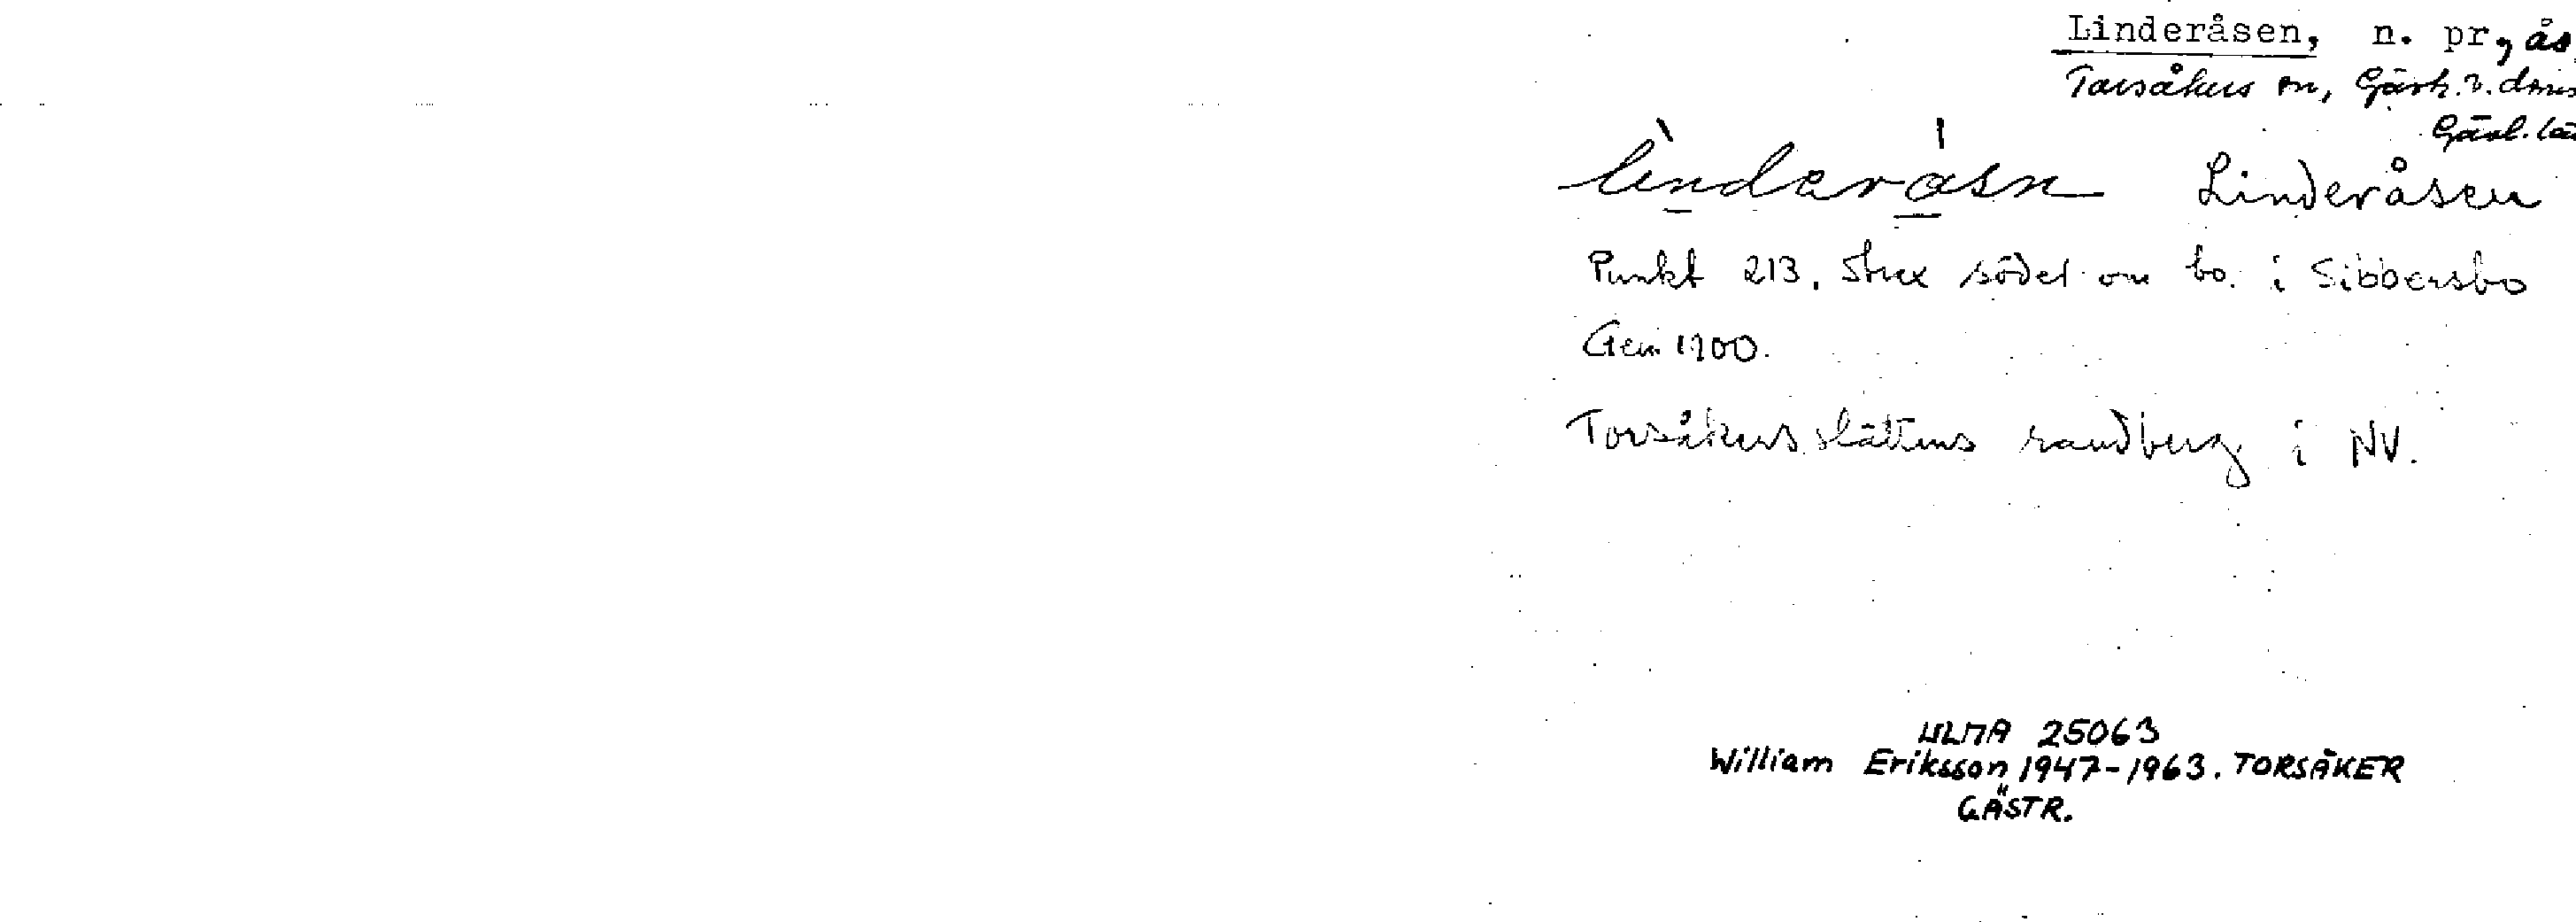 Linderåsen, n. pr, ås
Torsåkers sn, Gästr. v. doms
Gävl. lä
lìnderåsn Linderåsen
Punkt 213, strax söder om bo. i Sibbersbo
Gen 1900.
Torsåkersslättens randberg i NV.
ULMA 25063
William Eriksson 1947-1963. TORSÅKER
GÄSTR.